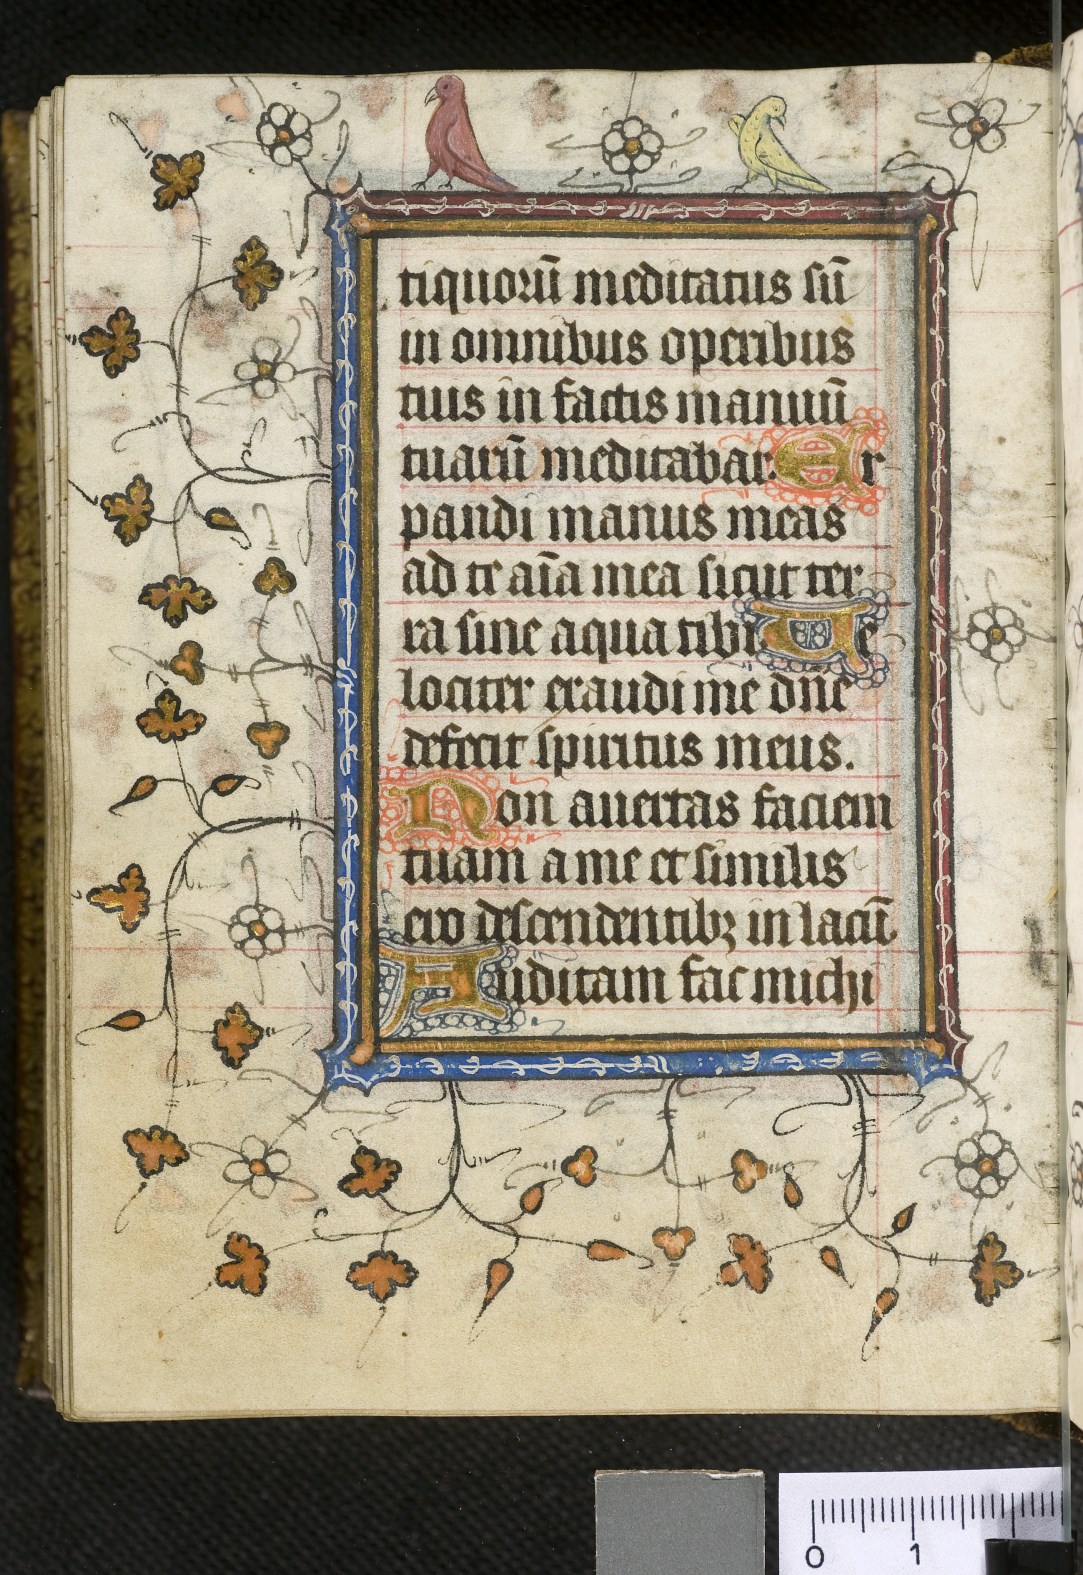 tiquorū meditatus sū
in omnibus operibus
tuis in factis manuū
tuarū meditabar. Ex
pandi manus meas
ad te aīa mea sicut ter
ra sine aqua tibi. Ve
lociter exaudi me dn̄e
defecit spiritus meus.
Non auertas faciem
tuam a me et similis
ero descendentibꝫ in lacū
Auditam fac michi
0 1